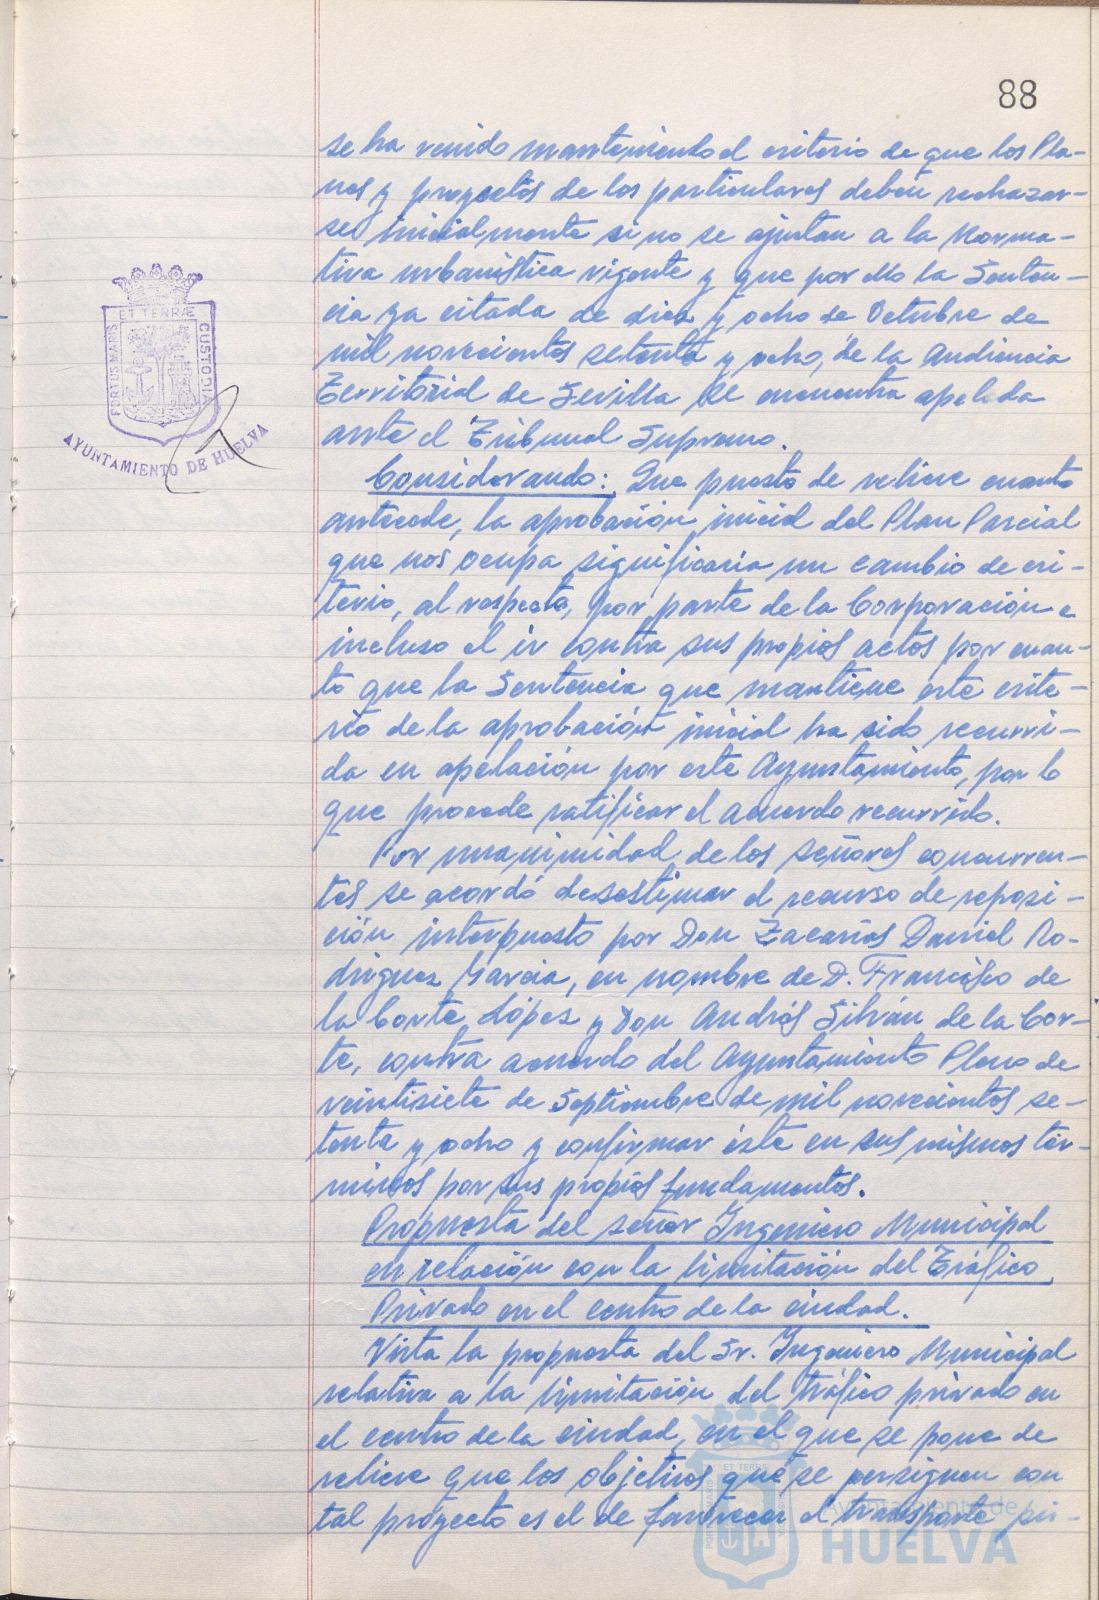 88
se ha venido manteniendo el criterio de que los Pla-
nes y proyectos de los particulares deben rechazar-
se inicialmente si no se ajustan a la Norma-
tiva urbanística vigente y que por ello la Senten-
cia ya citada de diez y ocho de Octubre de
mil novecientos setenta y ocho, de la Audiencia
Territorial de Sevilla se encuentra apelada
ante el Tribunal Supremo.
Considerando: Que puesto de relieve cuanto
antecede, la aprobación inicial del Plan Parcial
que nos ocupa significaría un cambio de cri-
terio, al respecto, por parte de la Corporación e
incluso el ir contra sus propios actos por cuan-
to que la Sentencia que mantiene este crite-
rio de la aprobación inicial ha sido recurri-
da en apelación por este Ayuntamiento, por lo
que procede ratificar el acuerdo recurrido.
Por unanimidad de los señores concurren-
tes se acordó desestimar el recurso de reposi-
ción interpuesto por Don Zacarías Daniel Ro-
driguez García, en nombre de D. Francisco de
la Corte López y Don Andrés Silván de la Cor-
te, contra acuerdo del Ayuntamiento Pleno de
veintisiete de Septiembre de mil novecientos se-
tenta y ocho y confirmar éste en sus mismos tér-
minos por sus propios fundamentos.
Propuesta del señor Ingeniero Municipal
en relación con la limitación del Tráfico
Privado en el centro de la ciudad.
Vista la propuesta del Sr. Ingeniero Municipal
relativa a la limitación del tráfico privado en
el centro de la ciudad, en el que se pone de
relieve que los objetivos que se persiguen con
tal proyecto es el de favorecer el transporte pú-
PORTUS MARIS ET TERRÆ CUSTODIA
AYUNTAMIENTO DE HUELVA
Ayuntamiento de
HUELVA